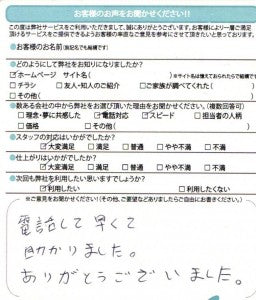 お客様のお声をお聞かせください!!
この度は弊社サービスをご利用いただきまして、誠にありがとうございます。お客様により一層ご満足
頂けるサービスをご提供できるようお客様の率直なご意見を参考にさせて頂きたいと思っております。
●お客様のお名前(仮名でも結構です)
●どのようにして弊社をお知りになりましたか?
☑ホームページ サイト名( )※サイト名は憶えておられたらで結構です
□チラシ □友人・知人のご紹介 □ご家族が調べてくれた( )
□その他( )
●数ある会社の中から弊社をお選び頂いた理由をお聞かせください。(複数回答可)
□理念・夢に共感した ☑電話対応 ☑スピード □担当者の人柄
□価格 □その他( )
●スタッフの対応はいかがでしたか?
☑大変満足 □満足 □普通 □やや不満 □不満
●仕上がりはいかがでしたか?
☑大変満足 □満足 □普通 □やや不満 □不満
●次回も弊社を利用したい思いますでしょうか?
☑利用したい □利用したくない
※ご意見をお聞かせください!(その他、ご要望などありましたらご自由にお書きください。)
電話して早くて
助かりました。
ありがとうございました。